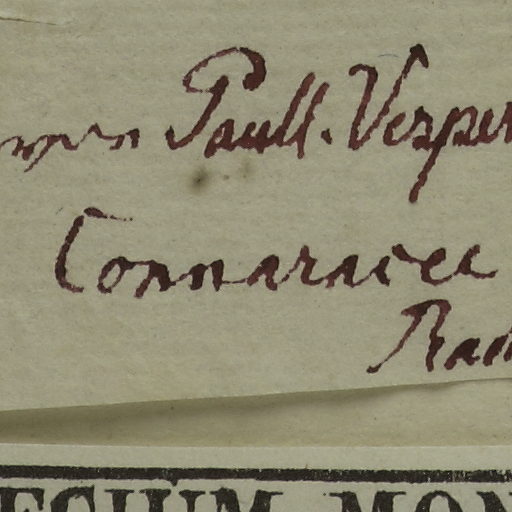 Paull. Vesper
Connaracea
Rad
EGIUM MON